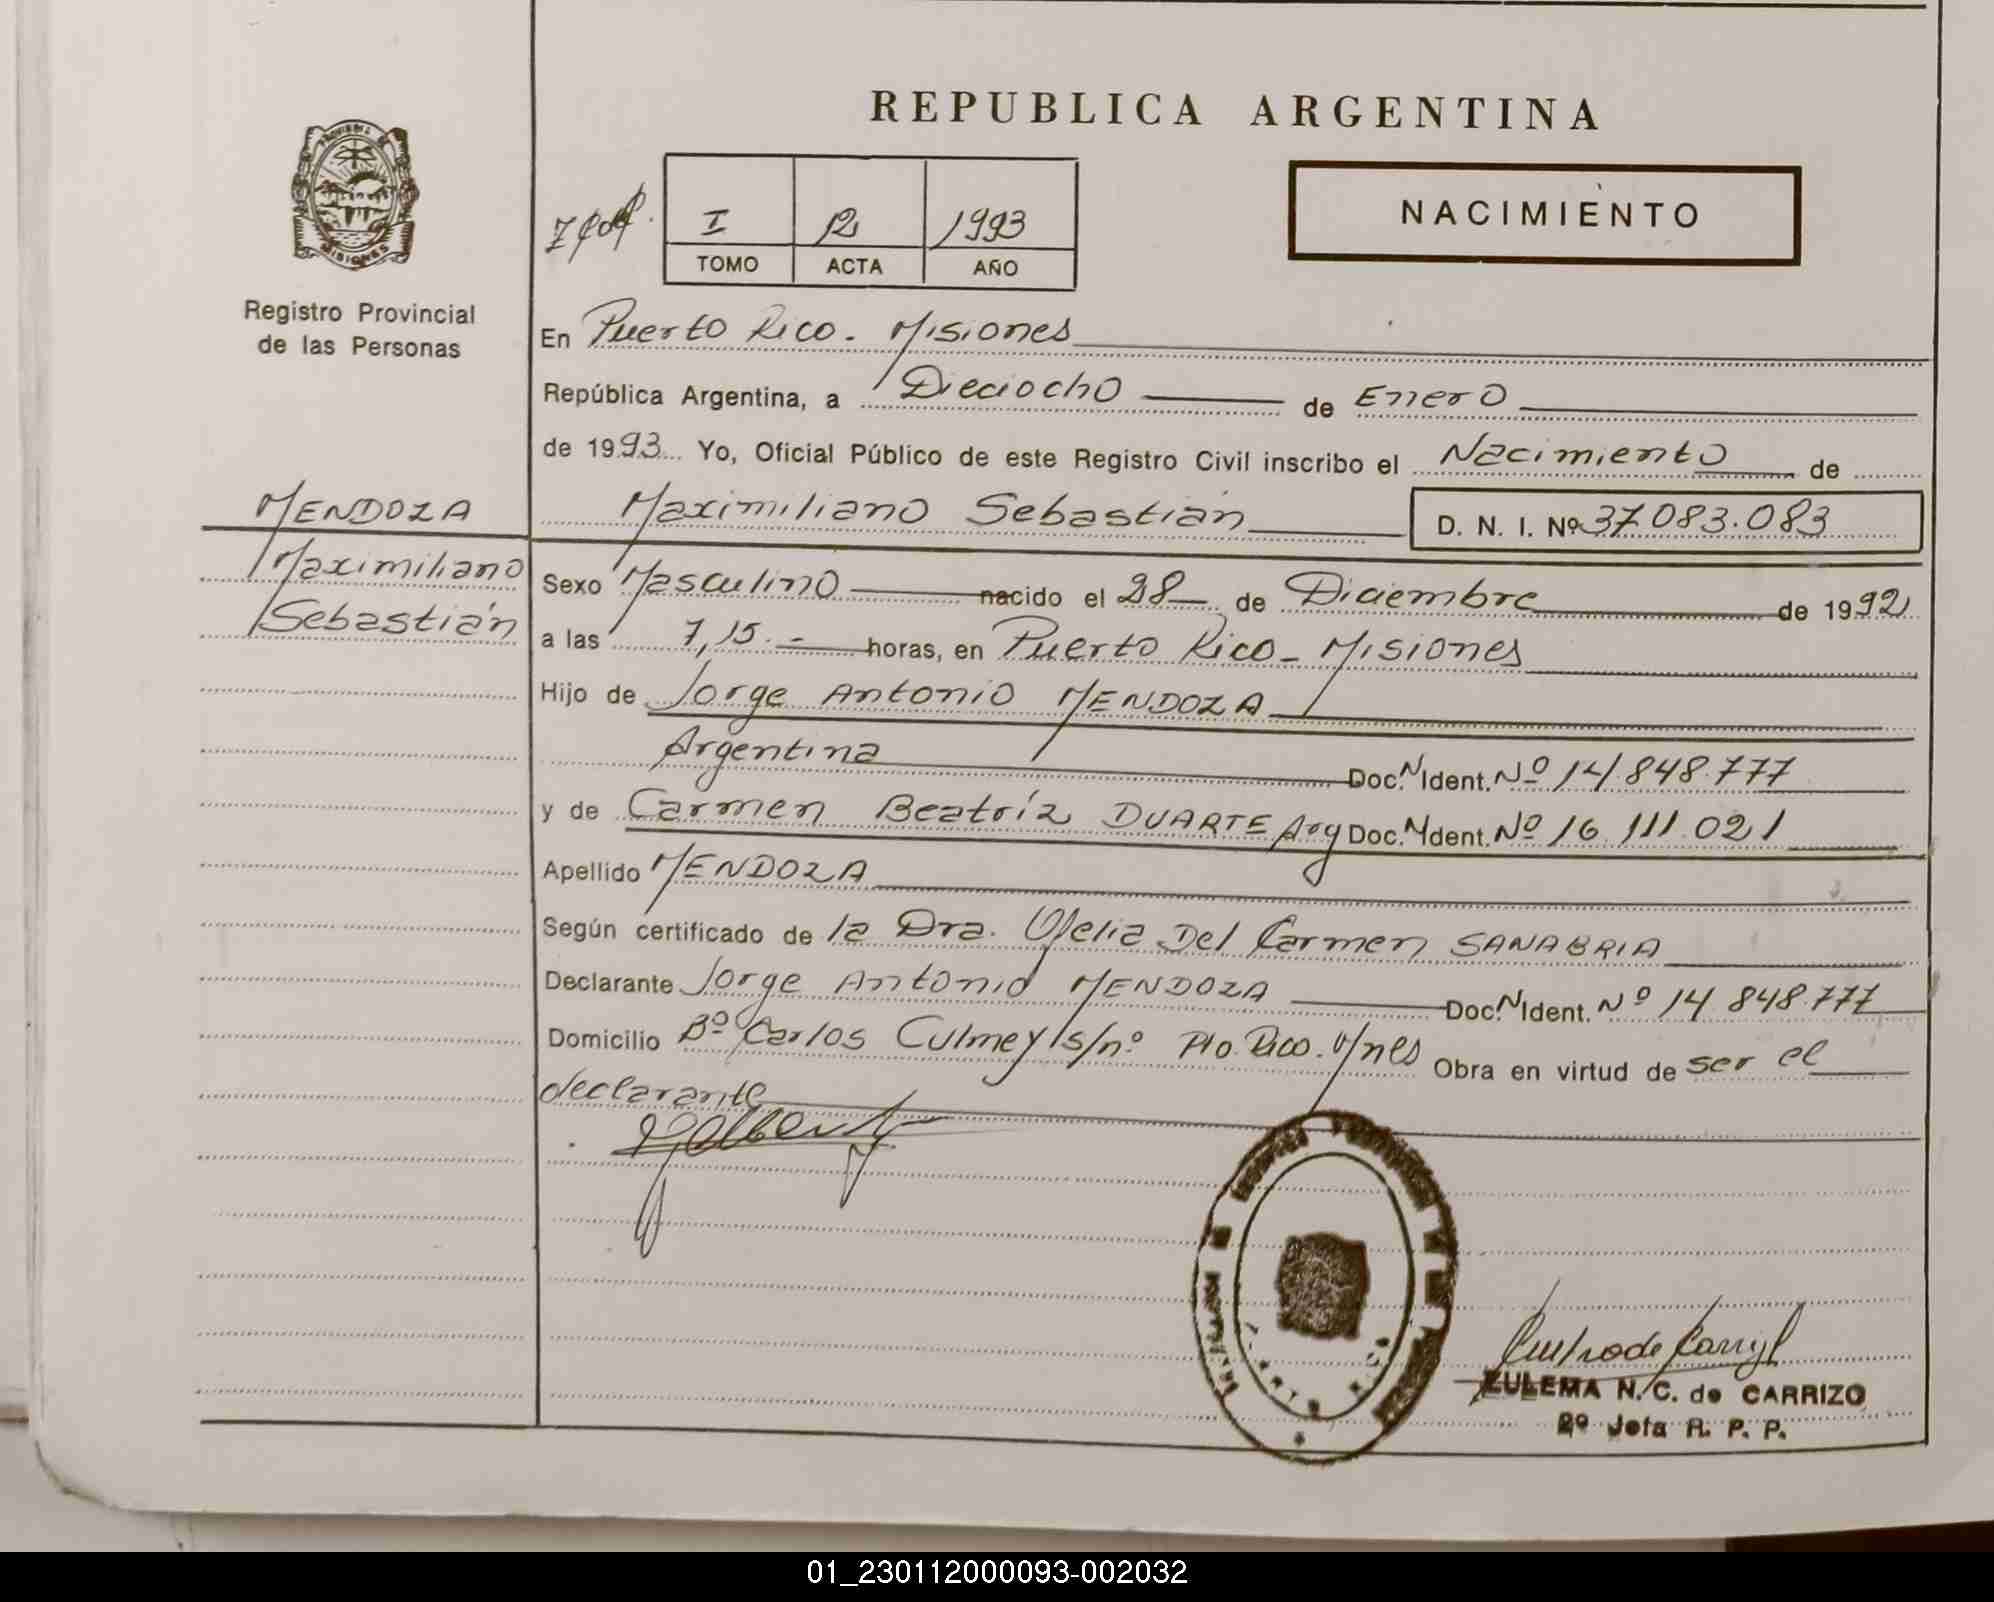 REPUBLICA ARGENTINA
PROVINCIA DE
MISIONES
Registro Provincial
de las Personas
I 12 1993
TOMO ACTA AÑO
NACIMIENTO
En Puerto Rico - Misiones
República Argentina, a Dieciocho de Enero
de 1993 Yo, Oficial Público de este Registro Civil inscribo el Nacimiento de
MENDOZA
Maximiliano
Sebastián
Maximiliano Sebastián D. N. I. Nº 37 083.083
Sexo Masculino nacido el 28 de Diciembre de 1992
a las 7,15.- horas, en Puerto Rico - Misiones
Hijo de Jorge Antonio MENDOZA
Argentina Doc. N Ident. Nº 14.848.777
y de Carmen Beatríz DUARTE Arg Doc. N Ident. Nº 16.111.021
Apellido MENDOZA
Según certificado de la Dra. Ofelia Del Carmen SANABRIA
Declarante Jorge Antonio MENDOZA Doc. N Ident. Nº 14.848.777
Domicilio Bº Carlos Culmey s/nº Pto. Rico. M/nes Obra en virtud de ser el
declarante
ZULEMA N. C. de CARRIZO
2º Jefa R. P. P.
01_230112000093-002032